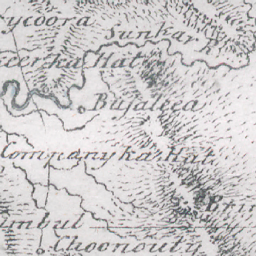 ycoora
Sunkar R.
cerka Hat
Bujaleea
Companyka Hat
Prin
mbul
Choonouty